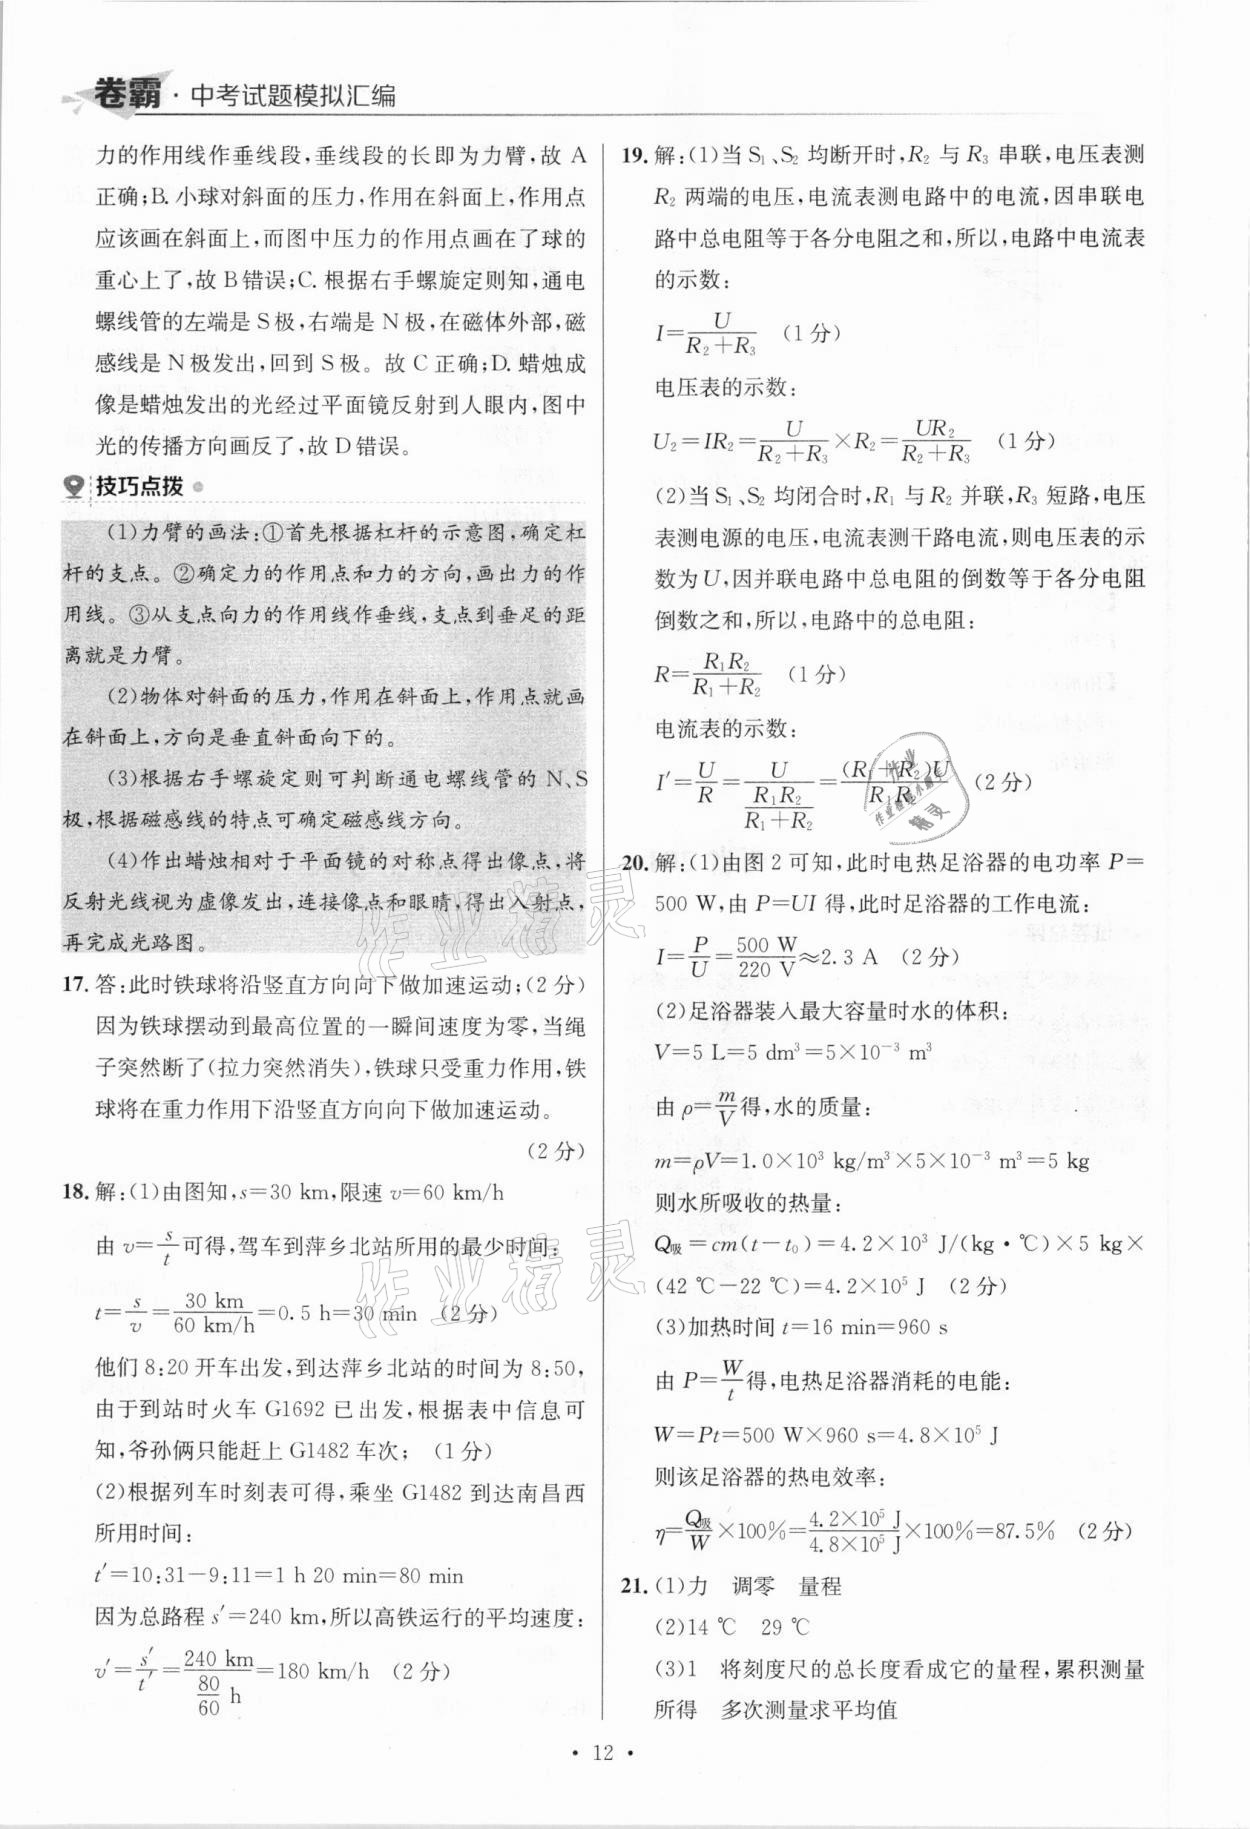 卷霸·中考试题模拟汇编
力的作用线作垂线段,垂线段的长即为力臂,故 A
正确;B. 小球对斜面的压力,作用在斜面上,作用点
应该画在斜面上,而图中压力的作用点画在了球的
重心上了,故 B错误;C. 根据右手螺旋定则知,通电
螺线管的左端是 S极,右端是 N极,在磁体外部,磁
感线是 N极发出,回到 S 极。故 C 正确;D. 蜡烛成
像是蜡烛发出的光经过平面镜反射到人眼内,图中
光的传播方向画反了,故 D错误。
技巧点拨
(1)力臂的画法:①首先根据杠杆的示意图,确定杠
杆的支点。②确定力的作用点和力的方向,画出力的作
用线。③从支点向力的作用线作垂线,支点到垂足的距
离就是力臂。
(2)物体对斜面的压力,作用在斜面上,作用点就画
在斜面上,方向是垂直斜面向下的。
(3)根据右手螺旋定则可判断通电螺线管的 N、S
极,根据磁感线的特点可确定磁感线方向。
(4)作出蜡烛相对于平面镜的对称点得出像点,将
反射光线视为虚像发出,连接像点和眼睛,得出入射点,
再完成光路图。
17. 答:此时铁球将沿竖直方向向下做加速运动;(2分)
因为铁球摆动到最高位置的一瞬间速度为零,当绳
子突然断了(拉力突然消失),铁球只受重力作用,铁
球将在重力作用下沿竖直方向向下做加速运动。
(2分)
18. 解:(1)由图知,s=30 km,限速 v=60 km/h
由 v=s/t可得,驾车到萍乡北站所用的最少时间:
t=s/v=30 km/60 km/h=0.5 h=30 min (2分)
他们 8:20 开车出发,到达萍乡北站的时间为 8:50,
由于到站时火车 G1692 已出发,根据表中信息可
知,爷孙俩只能赶上 G1482 车次; (1分)
(2)根据列车时刻表可得,乘坐 G1482 到达南昌西
所用时间:
t′=10:31-9:11=1 h 20 min=80 min
因为总路程 s′=240 km,所以高铁运行的平均速度:
v′=s′/t′=240 km/(80/60 h)=180 km/h (2分)
19. 解:(1)当 S₁、S₂ 均断开时,R₂ 与 R₃ 串联,电压表测
R₂ 两端的电压,电流表测电路中的电流,因串联电
路中总电阻等于各分电阻之和,所以,电路中电流表
的示数:
I=U/(R₂+R₃) (1分)
电压表的示数:
U₂=IR₂=U/(R₂+R₃)×R₂=UR₂/(R₂+R₃) (1分)
(2)当 S₁、S₂ 均闭合时,R₁ 与 R₂ 并联,R₃ 短路,电压
表测电源的电压,电流表测干路电流,则电压表的示
数为 U,因并联电路中总电阻的倒数等于各分电阻
倒数之和,所以,电路中的总电阻:
R=R₁R₂/(R₁+R₂) (1分)
电流表的示数:
I′=U/R=U/(R₁R₂/(R₁+R₂))=(R₁+R₂)U/R₁R₂ (2分)
20. 解:(1)由图 2 可知,此时电热足浴器的电功率 P=
500 W,由 P=UI 得,此时足浴器的工作电流:
I=P/U=500 W/220 V≈2.3 A (2分)
(2)足浴器装入最大容量时水的体积:
V=5 L=5 dm³=5×10⁻³ m³
由 ρ=m/V得,水的质量:
m=ρV=1.0×10³ kg/m³×5×10⁻³ m³=5 kg
则水所吸收的热量:
Q吸=cm(t-t₀)=4.2×10³ J/(kg·℃)×5 kg×
(42 ℃-22 ℃)=4.2×10⁵ J (2分)
(3)加热时间 t=16 min=960 s
由 P=W/t得,电热足浴器消耗的电能:
W=Pt=500 W×960 s=4.8×10⁵ J
则该足浴器的热电效率:
η=Q吸/W×100%=4.2×10⁵ J/4.8×10⁵ J×100%=87.5% (2分)
21. (1)力 调零 量程
(2)14 ℃ 29 ℃
(3)1 将刻度尺的总长度看成它的量程,累积测量
所得 多次测量求平均值
作业精灵
作业精灵
·12·